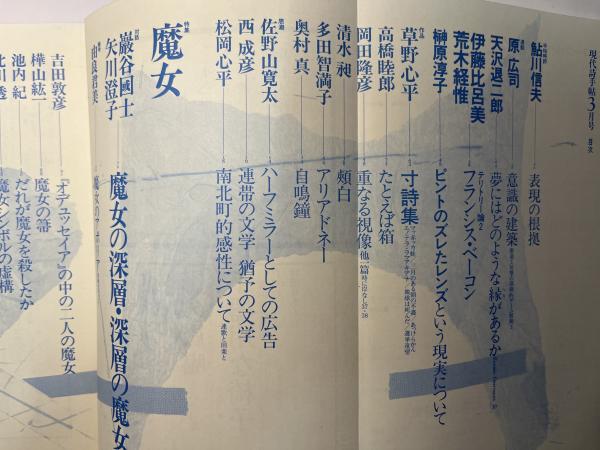 現代詩手帖3月号 目次
鮎川信夫 表現の根拠
原 広司 意識の建築
天沢退二郎 夢にはどのような縁があるか
伊藤比呂美
荒木経惟 テリトリー論2 フランシス・ベーコン
榊原淳子 ピントのズレたレンズという現実について
作品
草野心平 寸詩集
高橋睦郎 たとえば箱
岡田隆彦 重なる視像 他一篇
清水 昶 頰白
多田智満子 アリアドネー
奥村 真 自鳴鐘
佐野山寛太 ハーフミラーとしての広告
西 成彦 連帯の文学 猶予の文学
松岡心平 南北町的感性について 連歌と田楽と
特集
魔女
巖谷國士
矢川澄子 魔女の深層・深層の魔女
由良君美
吉田敦彦 『オデュッセイア』の中の二人の魔女
樺山紘一 魔女の箒
池内 紀 だれが魔女を殺したか
北川 透 魔女シンボルの虚構